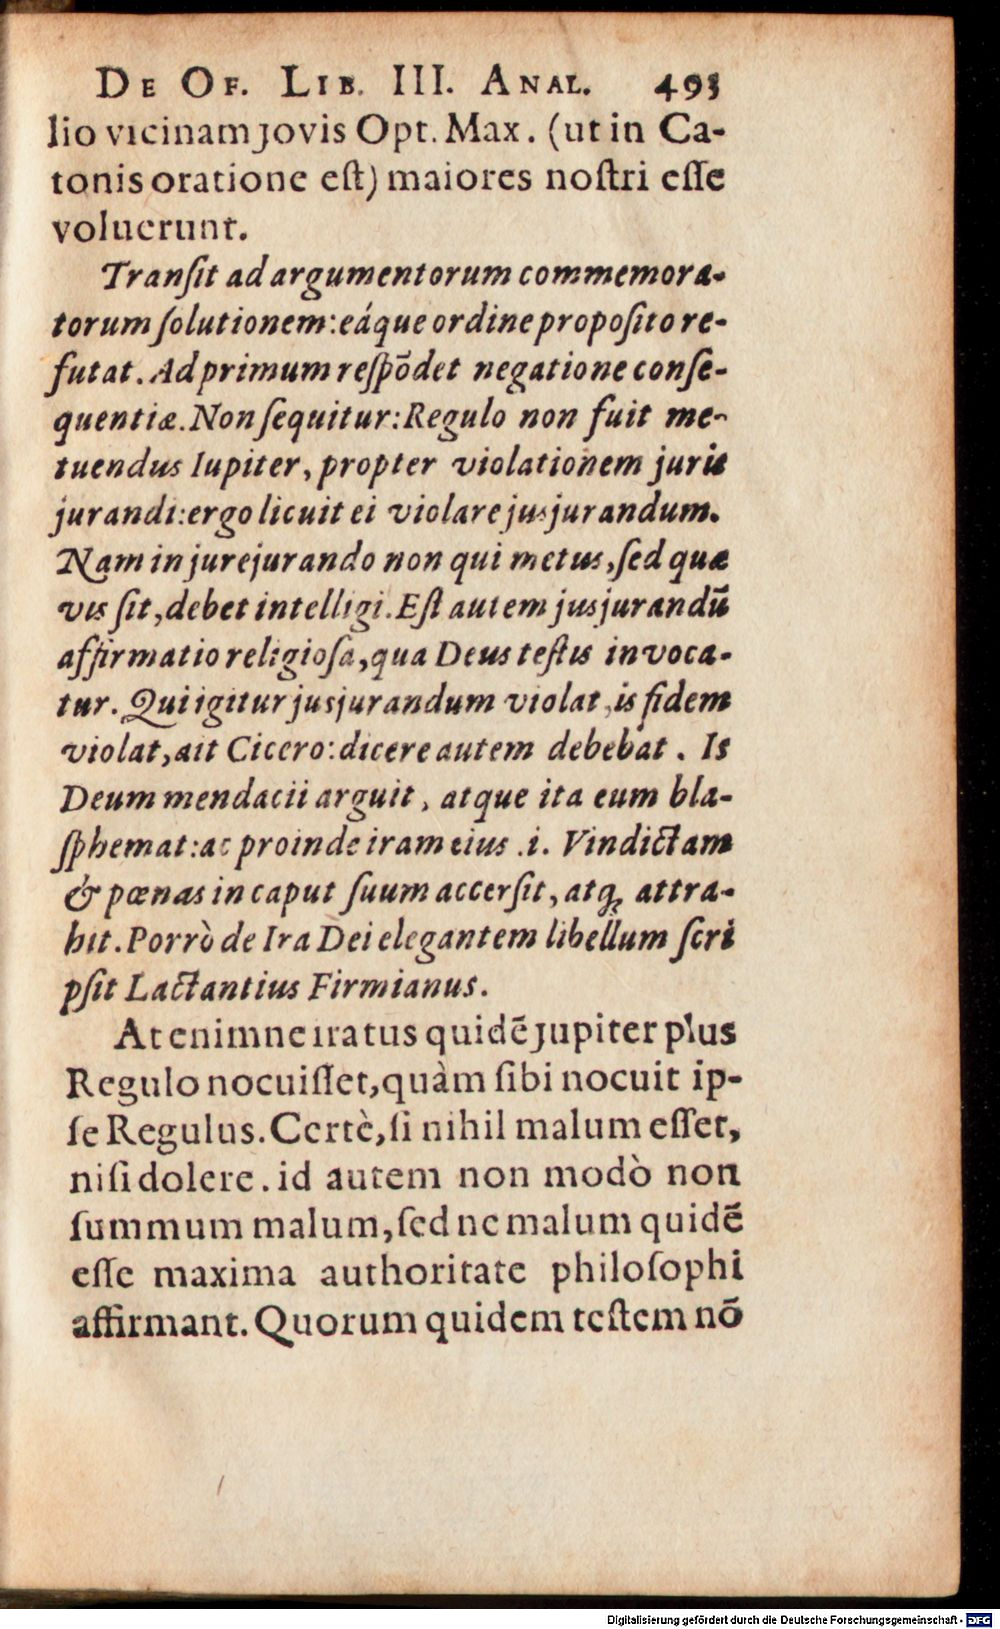 DE OF. LIB. III. ANAL. 493
lio vicinam Jovis Opt. Max. (ut in Ca-
tonis oratione eſt) maiores noſtri eſſe
voluerunt.
Tranſit ad argumentorum commemora-
torum ſolutionem: eáque ordine propoſito re-
futat. Ad primum reſpōdet negatione conſe-
quentiæ. Non ſequitur: Regulo non fuit me-
tuendus Iupiter, propter violationem juris
jurandi: ergo licuit ei violare jusjurandum.
Nam in jurejurando non qui metus, ſed quæ
vis ſit, debet intelligi. Eſt autem jusjurandū
affirmatio religioſa, qua Deus teſtis invoca-
tur. Qui igitur jusjurandum violat, is fidem
violat, ait Cicero: dicere autem debebat. Is
Deum mendacii arguit, atque ita eum bla-
ſphemat: ac proinde iram eius .i. Vindictam
& pœnas in caput ſuum accerſit, atq; attra-
hit. Porrò de Ira Dei elegantem libellum ſcri
pſit Lactantius Firmianus.
At enim ne iratus quidē Jupiter plus
Regulo nocuiſſet, quàm ſibi nocuit ip-
ſe Regulus. Certè, ſi nihil malum eſſet,
niſi dolere. id autem non modò non
ſummum malum, ſed ne malum quidē
eſſe maxima authoritate philoſophi
affirmant. Quorum quidem teſtem nō
Digitalisierung gefördert durch die Deutsche Forschungsgemeinschaft - DFG